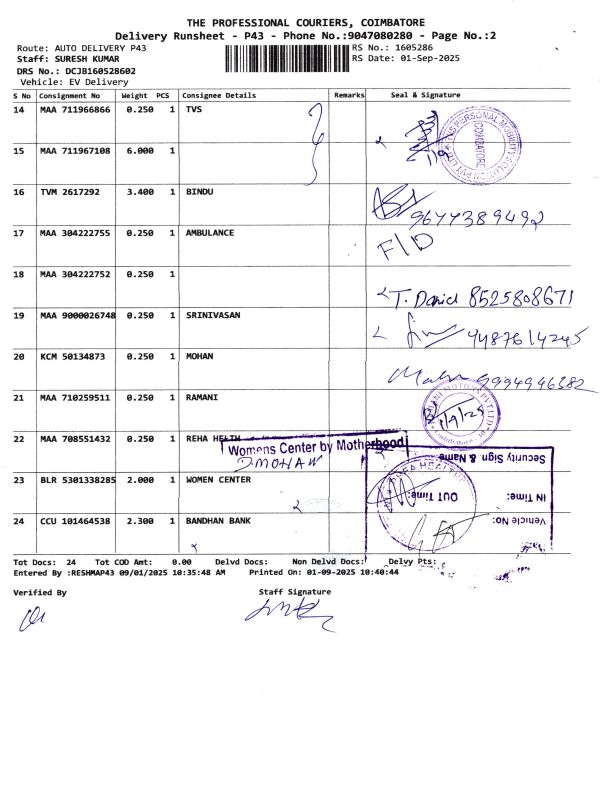 THE PROFESSIONAL COURIERS, COIMBATORE
Delivery Runsheet - P43 - Phone No.:9047080280 - Page No.:2
Route: AUTO DELIVERY P43 RS No.: 1605286
Staff: SURESH KUMAR RS Date: 01-Sep-2025
DRS No.: DCJB160528602
Vehicle: EV Delivery
S No Consignment No Weight PCS Consignee Details Remarks Seal & Signature
14 MAA 711966866 0.250 1 TVS
15 MAA 711967108 6.000 1
16 TVM 2617292 3.400 1 BINDU
9677389492
17 MAA 304222755 0.250 1 AMBULANCE
F/D
18 MAA 304222752 0.250 1
T. Daniel 8525808671
19 MAA 9000026748 0.250 1 SRINIVASAN
4487614245
20 KCM 50134873 0.250 1 MOHAN
9994946382
21 MAA 710259511 0.250 1 RAMANI
1/9/25
22 MAA 708551432 0.250 1 REHA HELTH
Womens Center by Motherhood
Security Sign & Name
23 BLR 5301338285 2.000 1 WOMEN CENTER
OUT Time:
IN Time:
24 CCU 101464538 2.300 1 BANDHAN BANK
Vehicle No:
Tot Docs: 24 Tot COD Amt: 0.00 Delvd Docs: Non Delvd Docs: Delvy Pts:
Entered By :RESHMAP43 09/01/2025 10:35:48 AM Printed On: 01-09-2025 10:40:44
Verified By Staff Signature